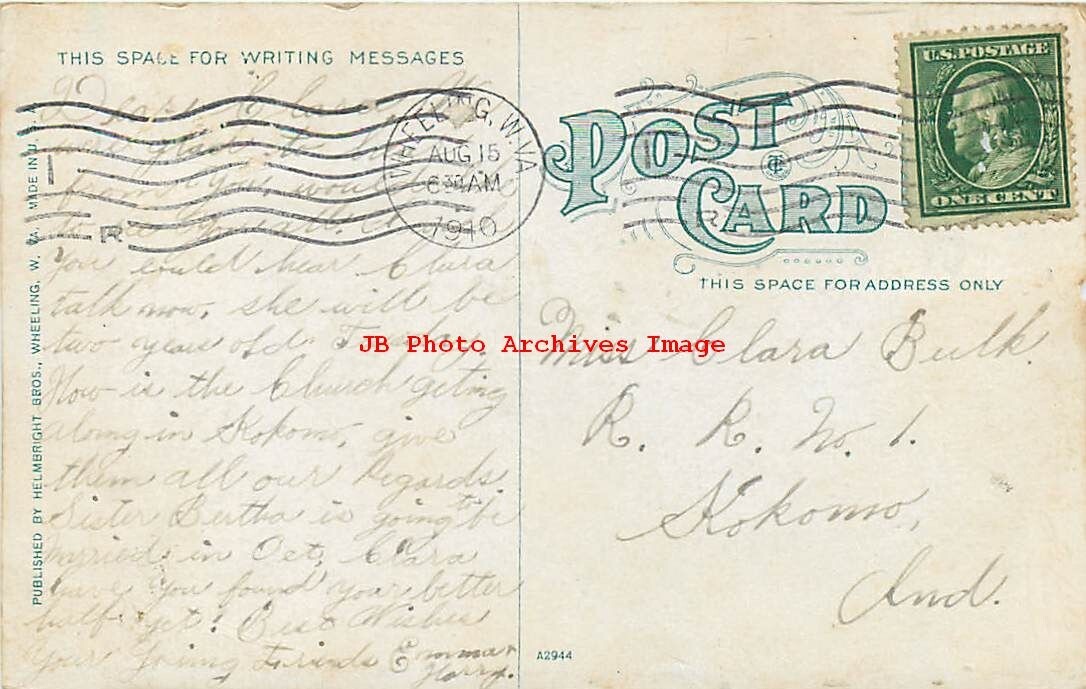 THIS SPACE FOR WRITING MESSAGES
Dear Clara
you could hear Clara
talk now, she will be
two years old Tuesday.
How is the Church geting
along in Kokomo, give
them all our Regards
Sister Bertha is going to be
married in Oct, Clara
have you found your better
half yet! Best Wishes
Your Friends Emma &
Harry.
PUBLISHED BY HELMBRIGHT BROS., WHEELING, W. VA. MADE IN U.S.A.
WHEELING, W. VA.
AUG 15
6 30 AM
1910
R
POST CARD
R
U.S. POSTAGE
ONE CENT
THIS SPACE FOR ADDRESS ONLY
Miss Clara Bulk.
R. R. No. 1.
Kokomo,
Ind.
A2944
JB Photo Archives Image